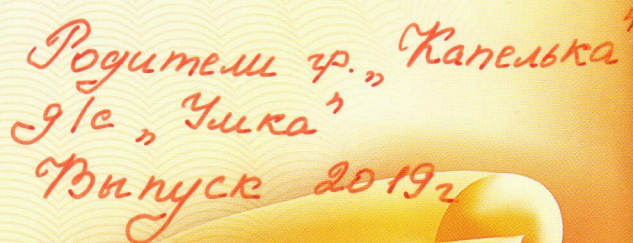 Родители гр. „Капелька"
д/с „Умка"
Выпуск 2019г